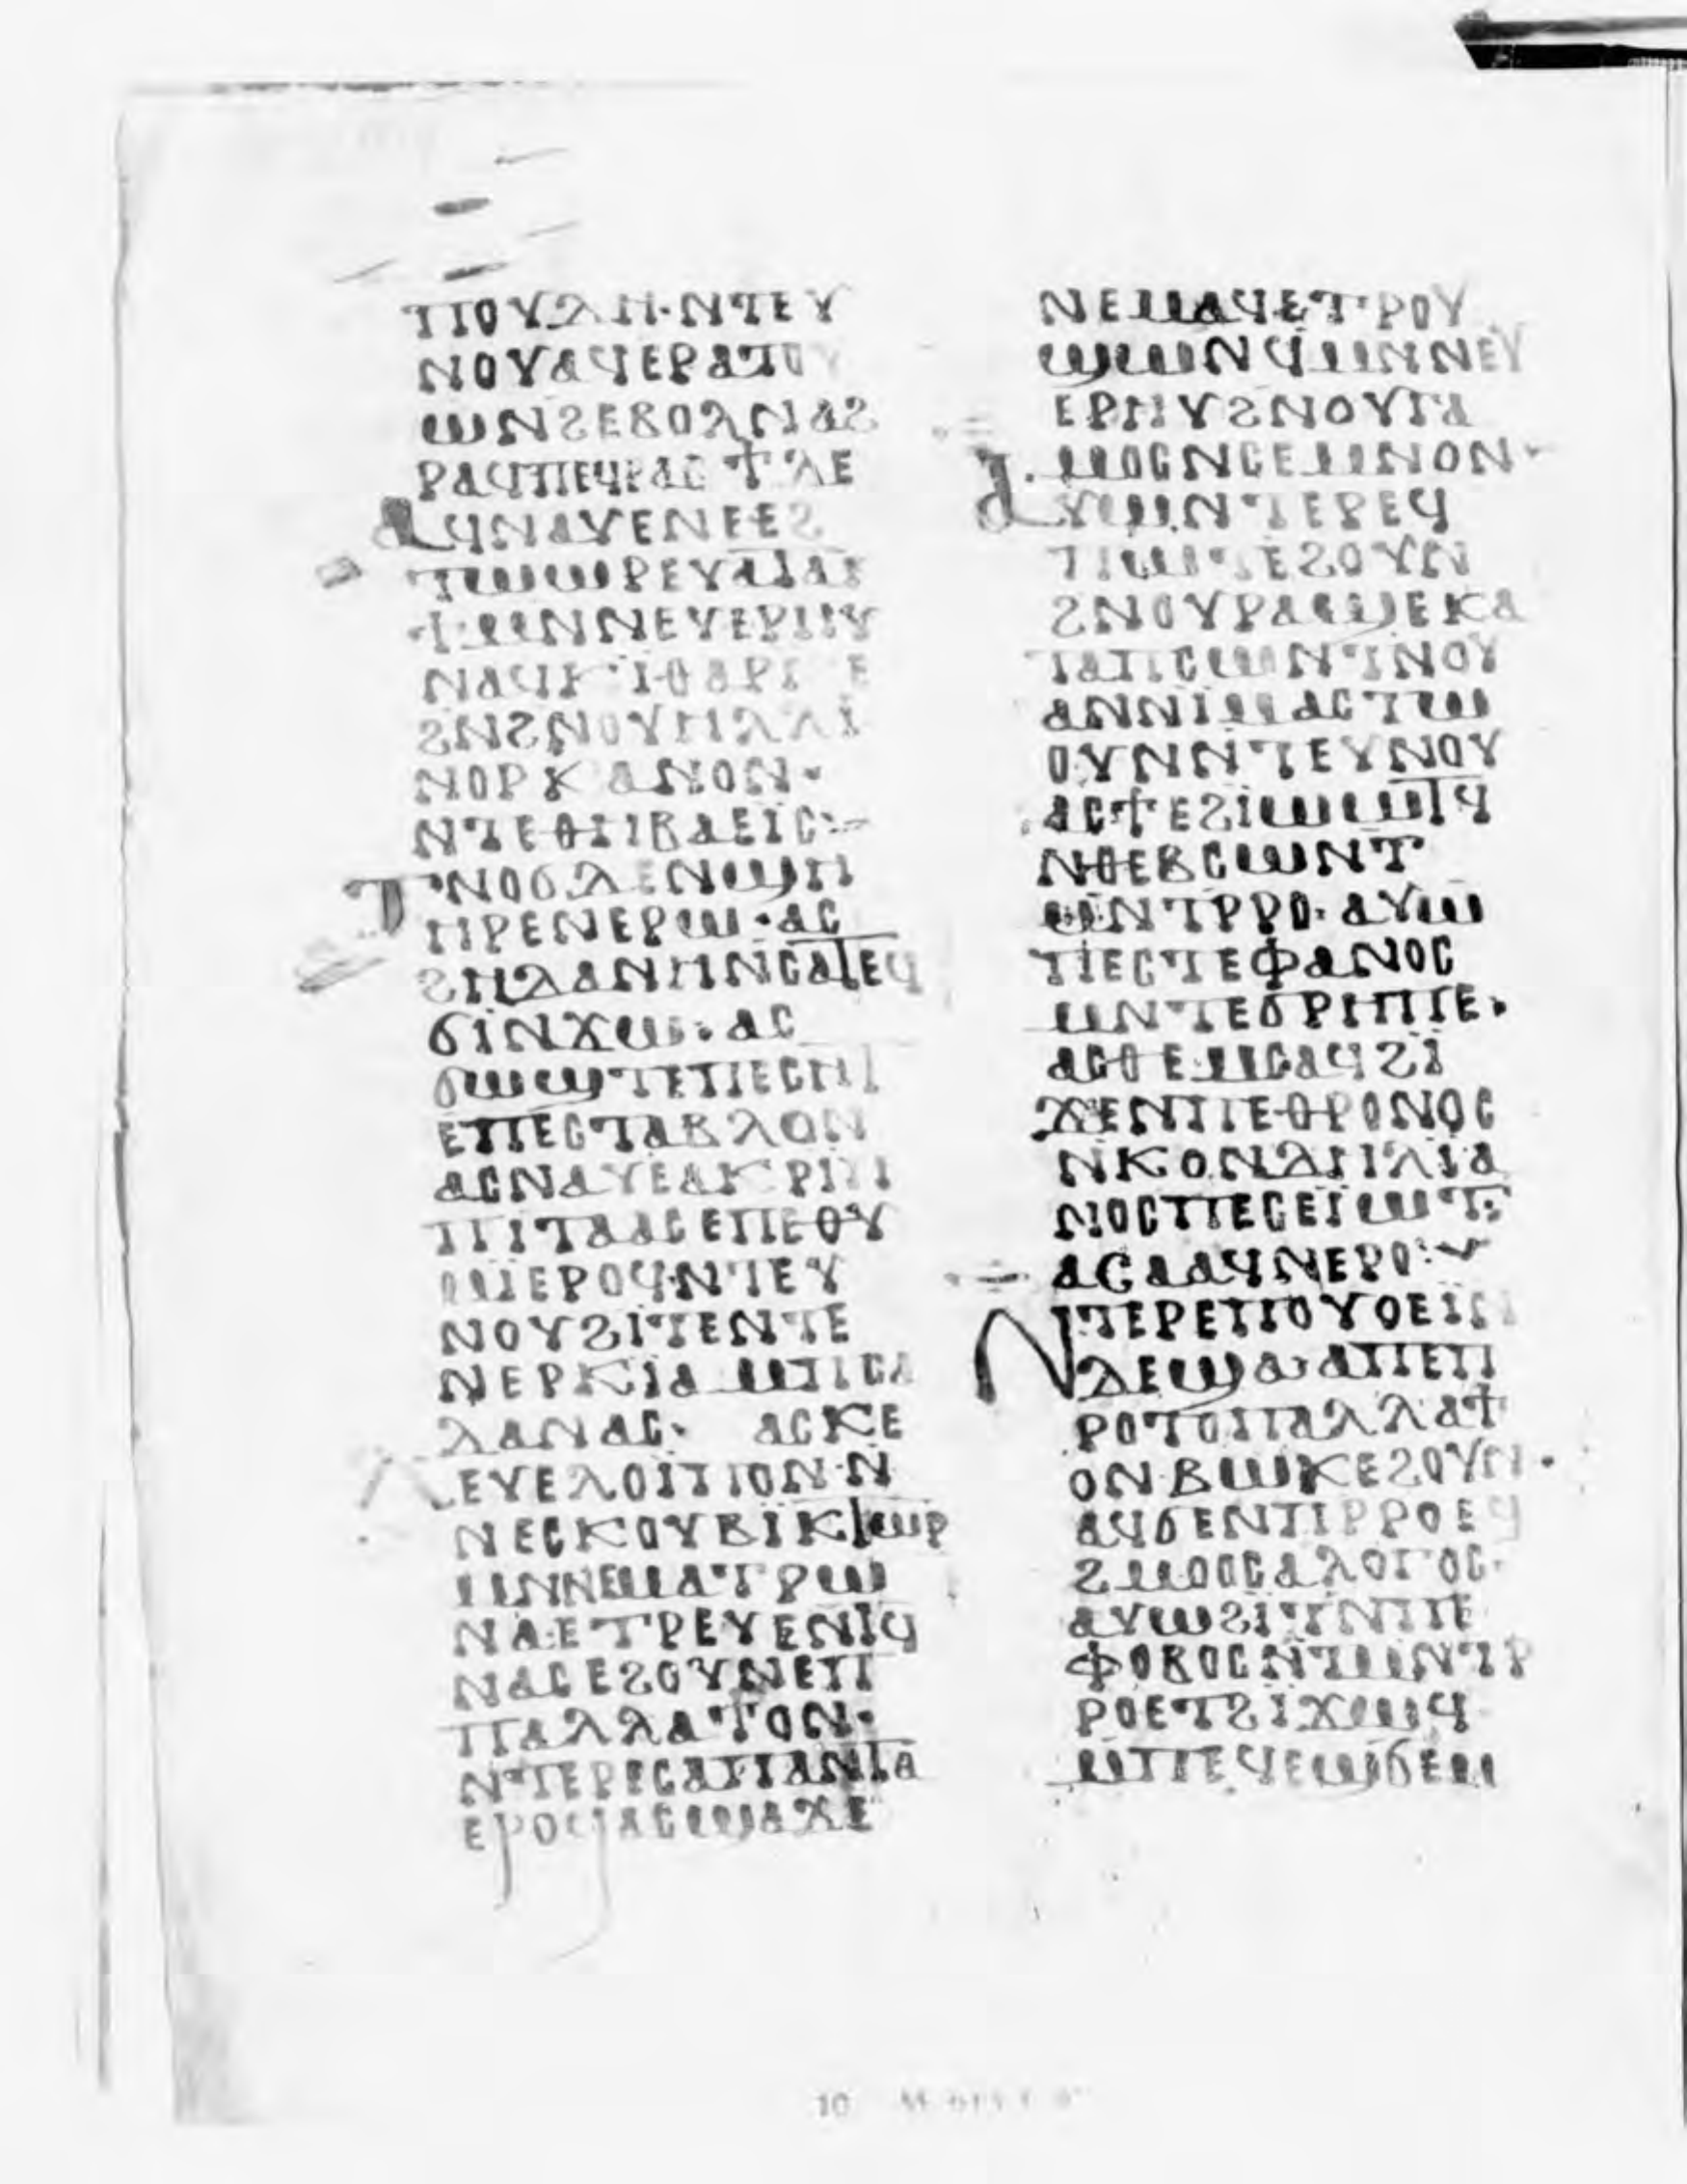 ⲡⲟⲩⲗⲏ·ⲛⲧⲉⲩ
ⲛⲟⲩⲁϥⲉⲣⲁⲧⲟⲩ
ⲱⲛϩⲉⲃⲟⲗⲛⲁϩ
ⲣⲁϥⲡⲉϥⲣⲁⲥϯⲇⲉ
ⲁϥⲛⲁⲩⲉⲛⲉⲉϩ
ⲧⲱⲱⲣⲉⲩ
ⲙⲛⲛⲉⲩⲉⲣⲏⲩ
ϩⲛϩⲛⲟⲩ
ⲛⲟⲣⲕⲁⲛⲟⲛ·
ⲛⲧⲉⲑⲏⲃⲁⲉⲓⲥ:
ⲧⲛⲟϭⲇⲉⲛϣⲏ
ⲏⲣⲉⲛⲉⲣⲱ·ⲁⲥ
ϩⲏⲇⲁⲛⲏⲛⲥⲁⲧⲉϥ
ϭⲓⲛϫⲱ·ⲁⲥ
ϭⲱϣⲧⲉⲡⲉⲥⲏⲧ
ⲉⲡⲉⲥⲧⲁⲃⲗⲟⲛ
ⲁⲥⲛⲁⲩⲉⲁⲕⲣⲓⲡ
ⲡⲓⲧⲁⲁⲥⲉⲡⲉⲑⲩ
ⲙⲉⲣⲟϥ·ⲛⲧⲉⲩ
ⲛⲟⲩϩⲓⲧⲉⲛⲧⲉ
ⲛⲉⲣⲕⲓⲁⲙⲡⲥⲁ
ⲇⲁⲛⲁⲥ· ⲁⲥⲕⲉ
ⲗⲉⲩⲉⲗⲟⲓⲡⲟⲛ·ⲛ
ⲛⲉⲥⲕⲟⲩⲃⲓⲕⲧⲱⲣ
ⲙⲛⲛⲉⲙⲁⲧⲣⲱ
ⲛⲁ·ⲉⲧⲣⲉⲩⲉⲛⲧϥ
ⲛⲁⲥⲉϩⲟⲩⲛⲉⲡ
ⲡⲁⲗⲗⲁⲧⲟⲛ·
ⲛⲧⲉⲣⲉⲥⲁⲡⲁⲛⲧⲁ
ⲉⲣⲟϥⲁⲥϣⲁϫⲉ
ⲛⲉⲙⲁϥⲉⲧⲣⲟⲩ
ϣⲱⲛϥⲙⲛⲛⲉⲩ
ⲉⲣⲏⲩϩⲛⲟⲩⲅⲁ
ⲙⲟⲥⲛⲥⲉⲙⲛⲟⲛ·
ⲁⲩⲱⲛⲧⲉⲣⲉϥ
ⲧⲱⲧⲉϩⲟⲩⲛ
ϩⲛⲟⲩⲣⲁϣⲉⲕⲁ
ⲧⲁⲡⲥⲱⲛⲧⲛⲟⲩ
ⲁⲛⲛⲓⲙⲁⲥⲧⲱ
ⲟⲩⲛⲛⲧⲉⲩⲛⲟⲩ
ⲁⲥϯⲉϩⲓⲱⲱⲧϥ
ⲛⲑⲉⲃⲥⲱⲛⲧ
ⲙⲛⲧⲣⲣⲟ·ⲁⲩⲱ
ⲡⲉⲥⲧⲉⲫⲁⲛⲟⲥ
ⲙⲛⲧⲉϭⲣⲏⲡⲉ·
ⲁⲥⲑⲉⲙⲥⲁϥϩⲓ
ϫⲉⲛⲡⲉⲑⲣⲟⲛⲟⲥ
ⲛⲕⲟⲛⲇⲓⲇⲓⲁ
ⲛⲟⲥⲡⲉⲥⲉⲓⲱⲧ:
ⲁⲥⲁⲁϥⲛⲉⲣⲟ·
ⲛⲧⲉⲣⲉⲡⲟⲩⲟⲉⲓⲛ
ⲇⲉϣⲁ·ⲁⲡⲉⲡ
ⲣⲟⲧⲟⲡⲁⲗⲗⲁϯ
ⲟⲛⲃⲱⲕⲉϩⲟⲩⲛ·
ⲁϥϭⲉⲛⲡⲣⲣⲟⲉϥ
ϩⲙⲟⲟⲥⲁⲗⲟⲅⲟⲥ·
ⲁⲩⲱϩⲓⲧⲛⲡⲉ
ⲫⲟⲃⲟⲥⲛⲧⲙⲛⲧⲣ
ⲣⲟⲉⲧϩⲓϫⲱϥ
ⲙⲡⲉϥⲉϣϭⲉⲙ